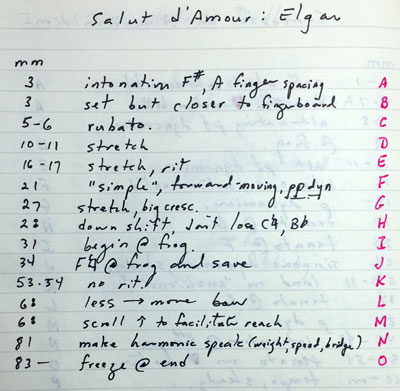 Salut d'Amour: Elgar
mm
3 intonation F#, A finger spacing A
3 set but closer to fingerboard B
5-6 rubato. C
10-11 stretch D
16-17 stretch, rit E
21 "simple", forward-moving, pp dyn F
27 stretch, big cresc. G
28 down shift, don't lose C♮, Bb H
31 begin @ frog. I
34 F♮ @ frog and save J
53-54 no rit. K
68 less → more bow L
68 scroll ↑ to facilitate reach M
81 make harmonic speak (weight, speed, bridge) N
83— freeze @ end O